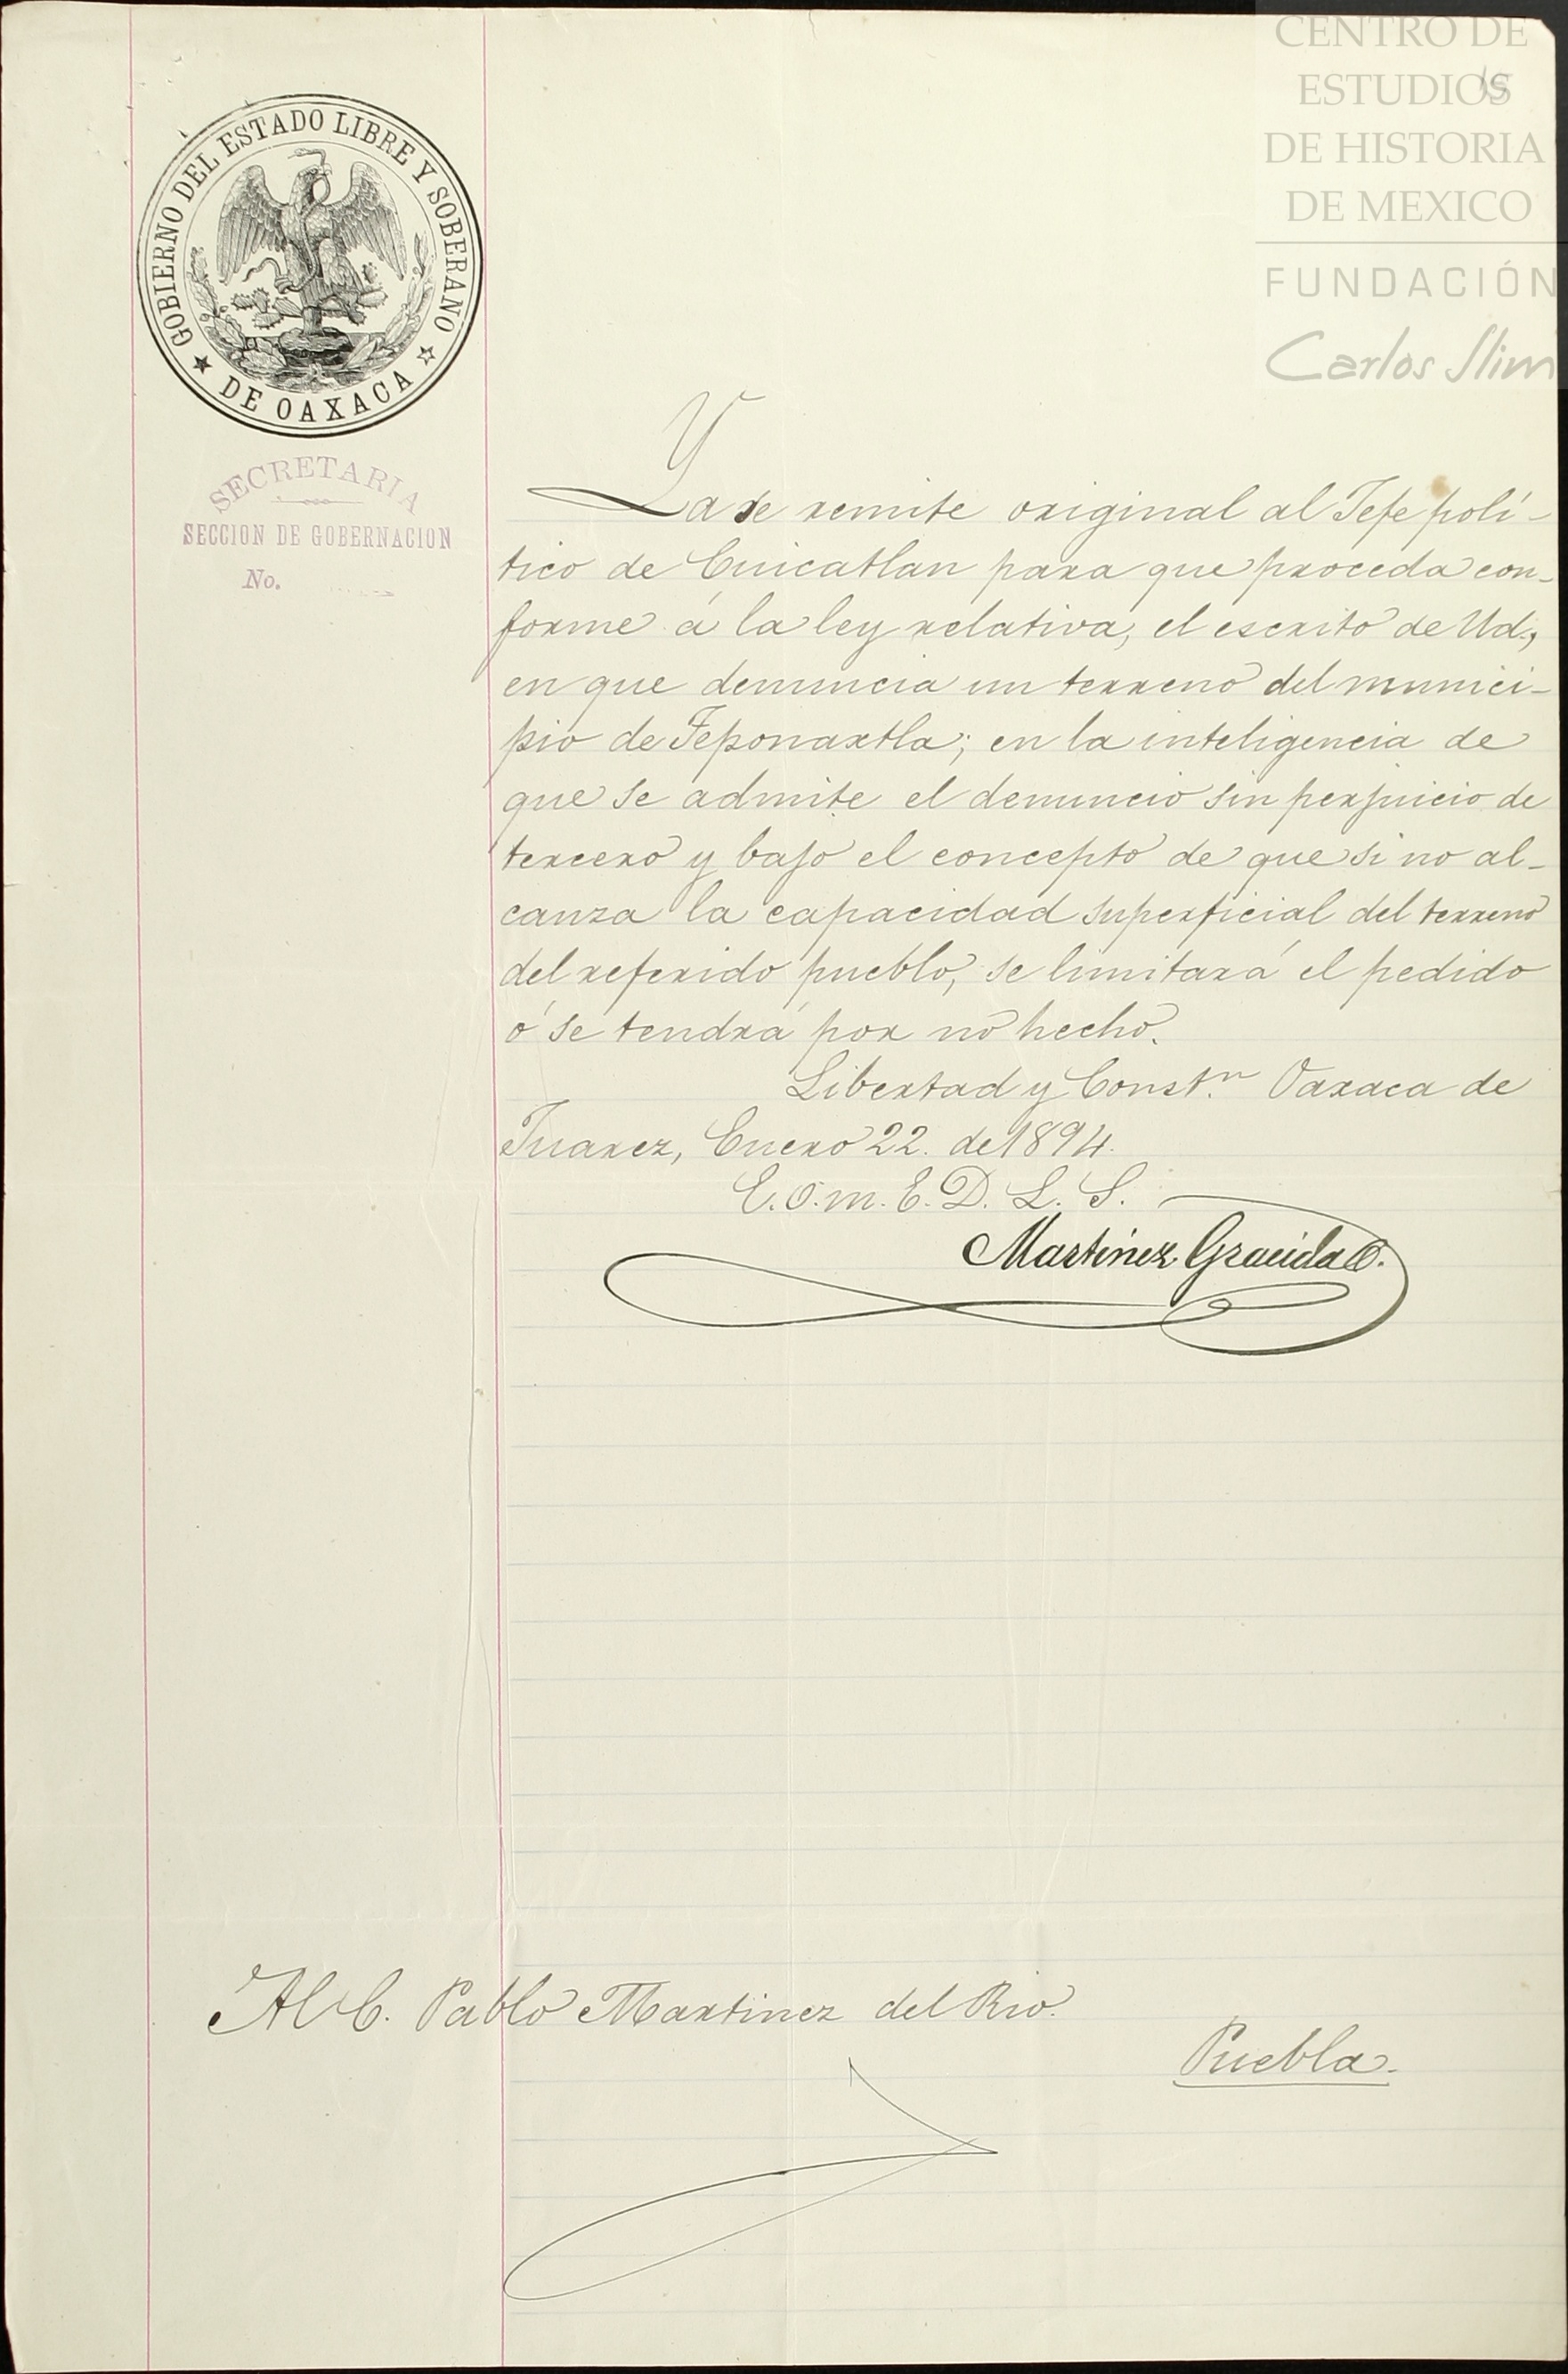 CENTRO DE
ESTUDIOS
DE HISTORIA
DE MEXICO
FUNDACIÓN
Carlos Slim
15
GOBIERNO DEL ESTADO LIBRE Y SOBERANO
DE OAXACA
SECRETARIA
SECCION DE GOBERNACION
No.
Y
La se remite original al Jefe polí-
tico de Cuicatlan para que proceda con-
forme á la ley relativa, el escrito de Ud.,
en que denuncia un terreno del munici-
pio de Teponaxtla; en la inteligencia de
que se admite el denuncio sin perjuicio de
tercero y bajo el concepto de que si no al-
canza la capacidad superficial del terreno
del referido pueblo, se limitará el pedido
ó se tendrá por no hecho.
Libertad y Const.n Oaxaca de
Juarez, Enero 22. de 1894.
E. O. m. E. D. L. S.
Martinez Gracida
Al C. Pablo Martinez del Rio.
Puebla.